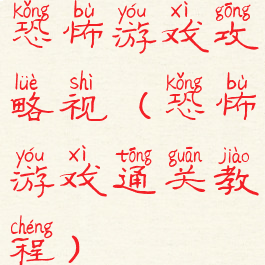 kǒng bù yóu xì gōng
恐怖游戏攻
lüè shì kǒng bù
略视(恐怖
yóu xì tōng guān jiào
游戏通关教
chéng
程)